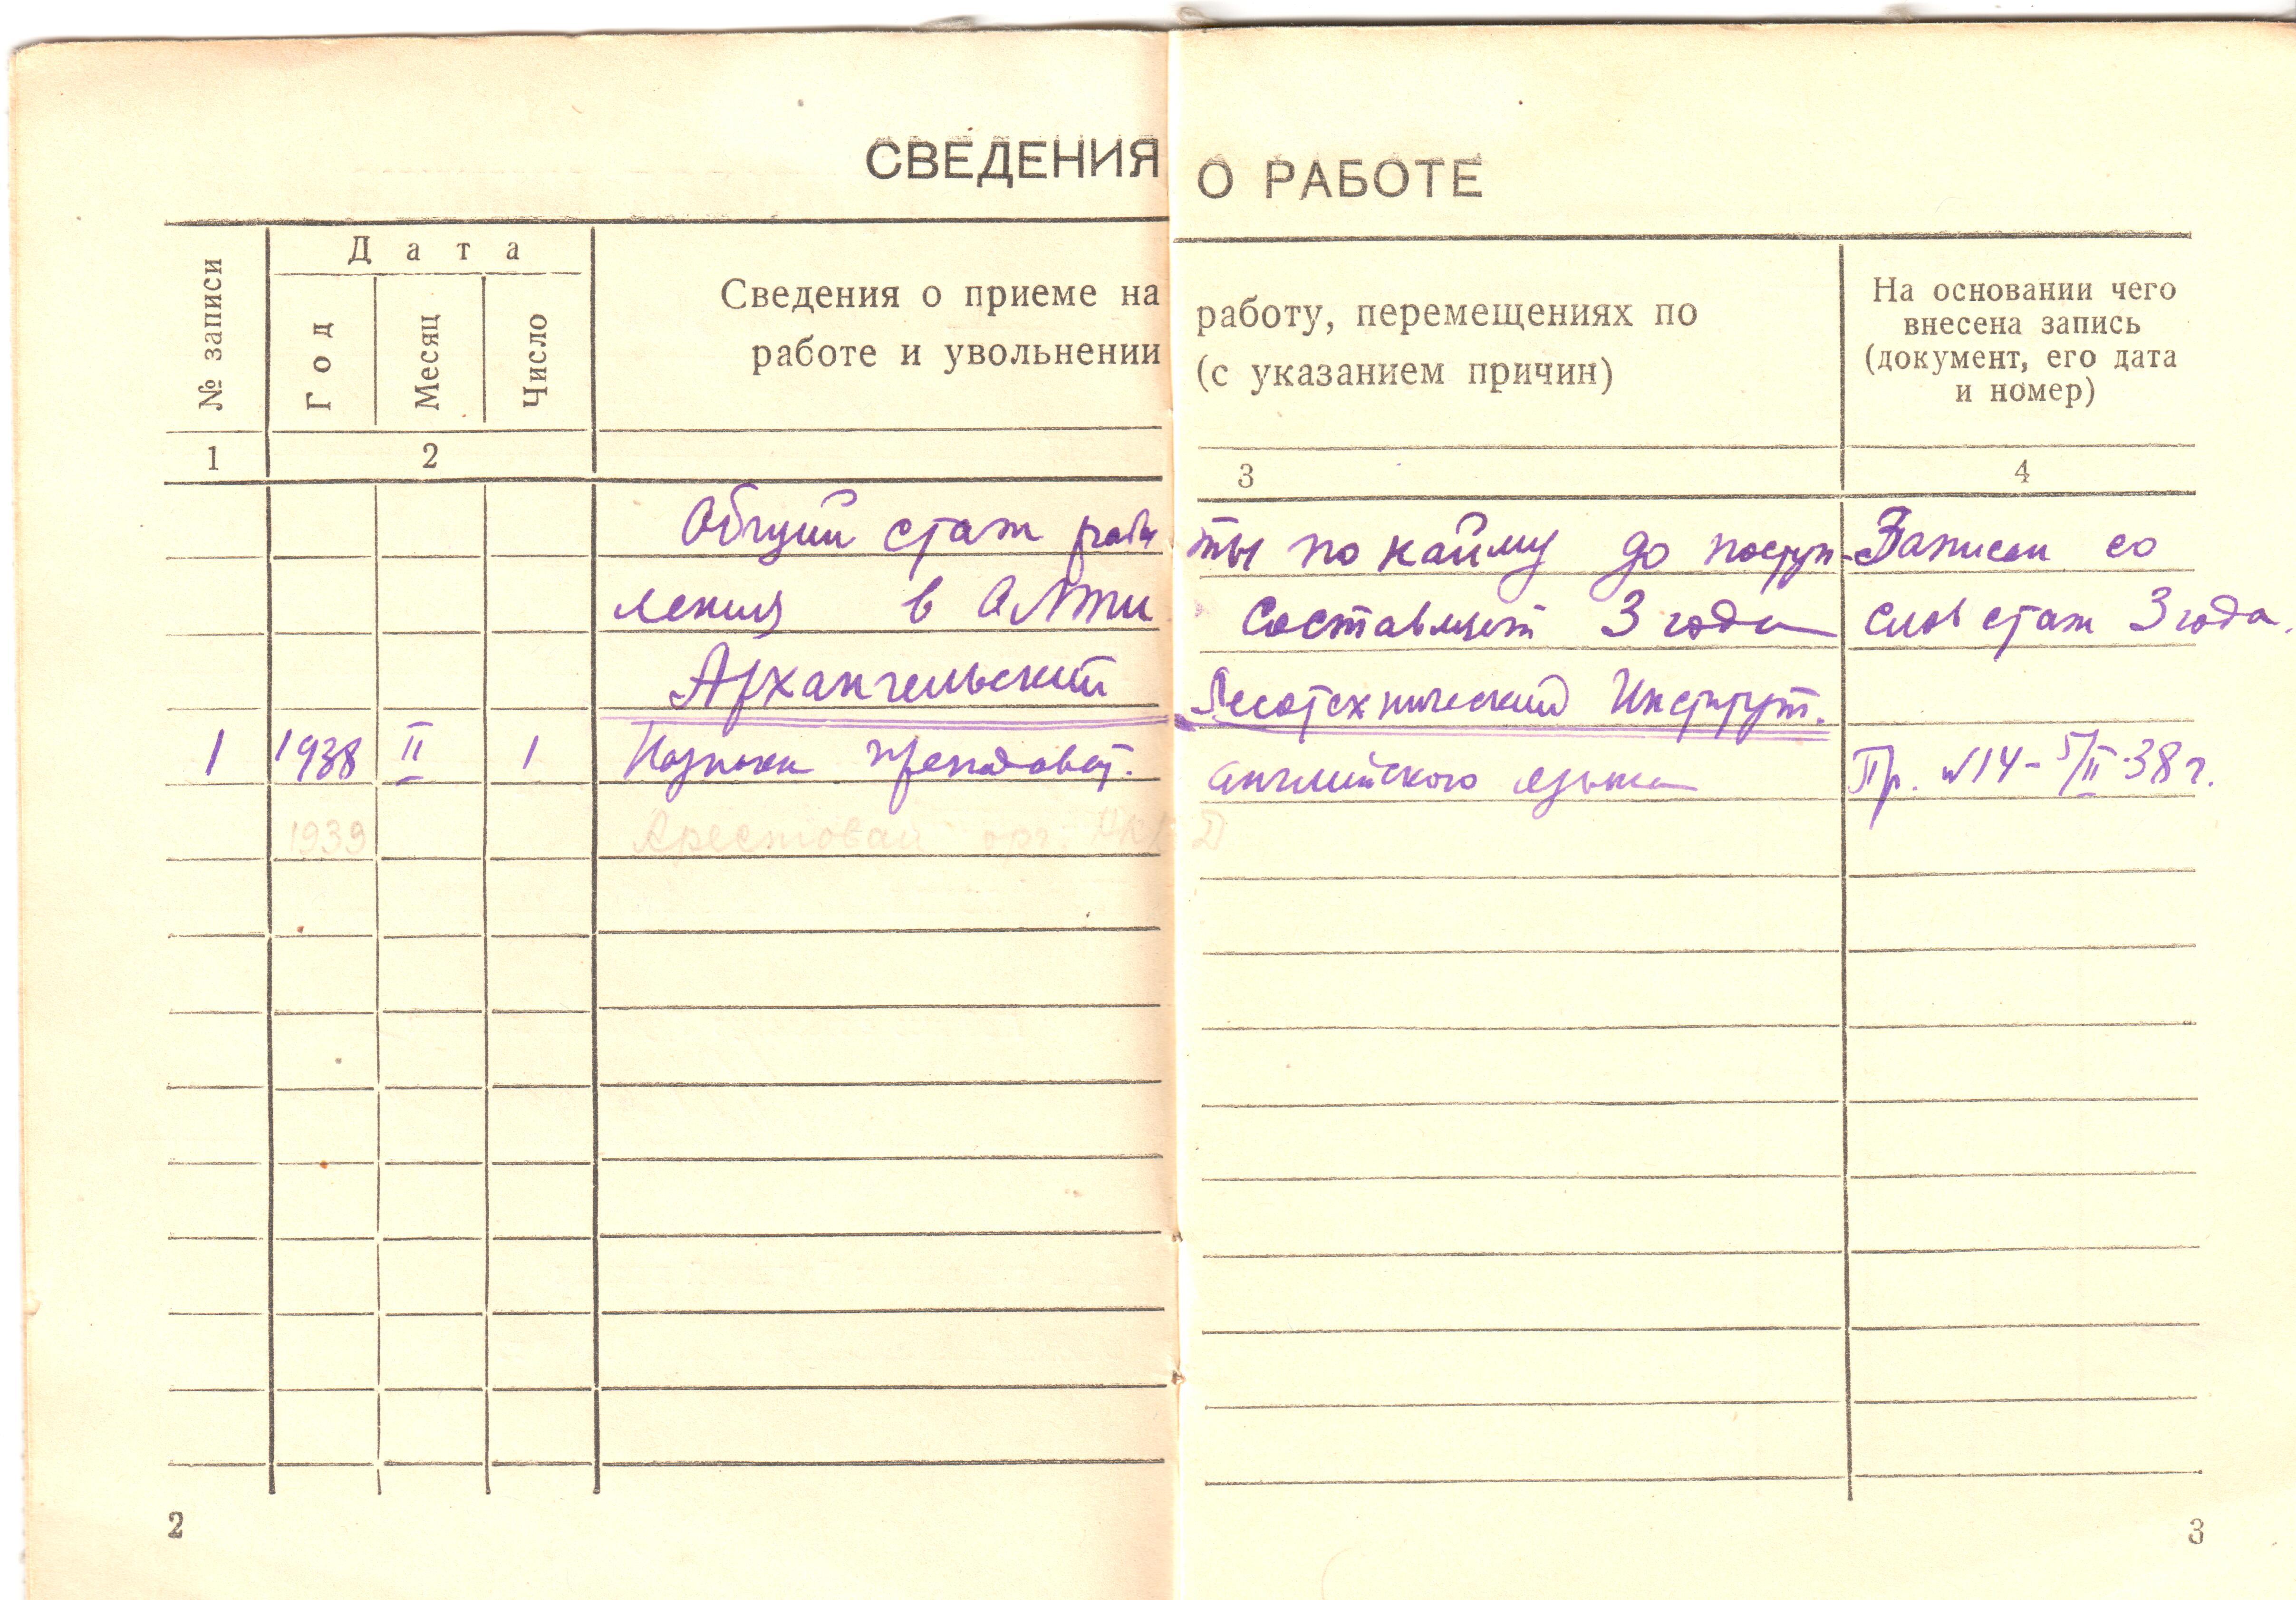 СВЕДЕНИЯ О РАБОТЕ
№ записи
Дата
Год
Месяц
Число
Сведения о приеме на работу, перемещениях по
работе и увольнении (с указанием причин)
На основании чего
внесена запись
(документ, его дата
и номер)
1 2 3 4
Общий стаж работы по найму до поступ- Записан со
ления в АЛТИ составляет 3 года слов стаж 3 года.
Архангельский Лесотехнический Институт.
1 1938 II 1 Назначен преподават. английского языка Пр. №14-5/II-38 г.
1939 Арестован орг. НКВД
2
3